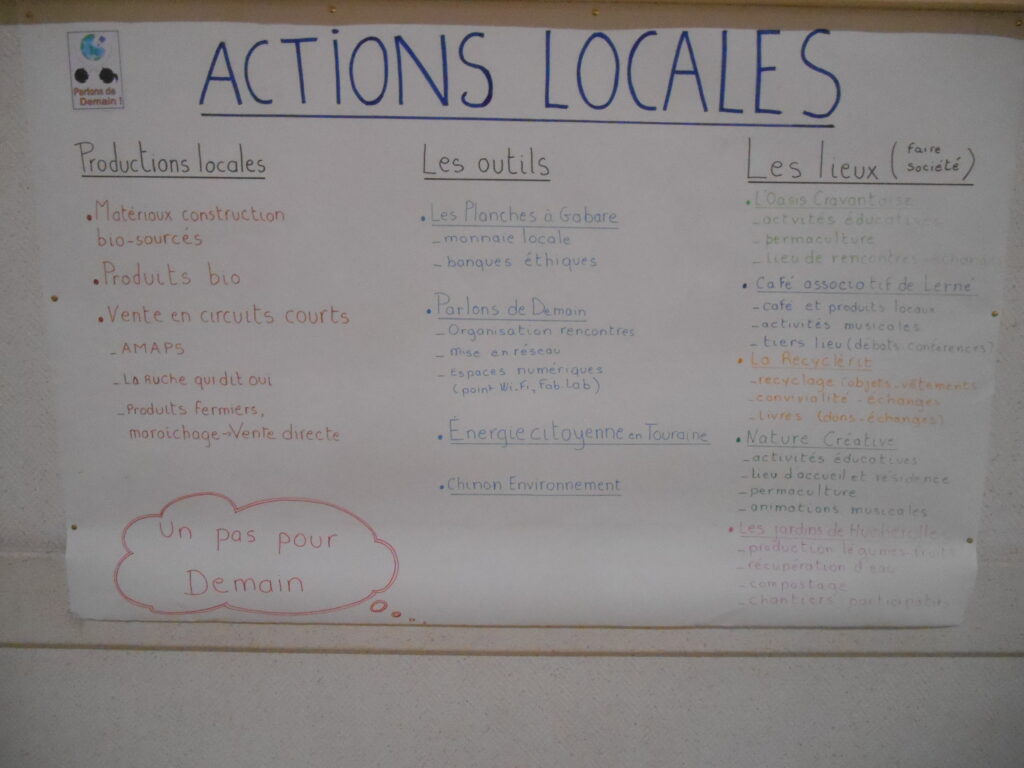 Parlons de
Demain !
ACTIONS LOCALES
Productions locales
• Matériaux construction
bio-sourcés
• Produits bio
• Vente en circuits courts
- AMAPS
- La Ruche qui dit oui
- Produits fermiers,
maraichage → Vente directe
Un pas pour
Demain
Les outils
• Les Planches à Gabare
- monnaie locale
- banques éthiques
• Parlons de Demain
- Organisation rencontres
- mise en réseau
- Espaces numériques
(point Wi.Fi, Fab.Lab)
• Énergie citoyenne en Touraine
• Chinon Environnement
Les lieux (faire
société)
• L'Oasis Cravantaise
- activités éducatives
- permaculture
- lieu de rencontres-échanges
• Café associatif de Lerné
- café et produits locaux
- activités musicales
- tiers lieu (débats conférences)
• La Récyclerit
- recyclage (objets-vêtements
- convivialité - échanges
- livres (dons-échanges)
• Nature Créative
- activités éducatives
- lieu d'accueil et résidence
- permaculture
- animations musicales
• Les jardins de
- production légumes-fruits
- récupération d'eau
- compostage
- chantiers participatifs